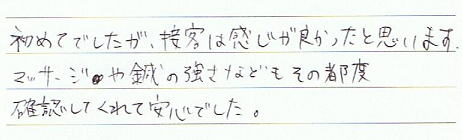 初めてでしたが、接客は感じが良かったと思います.
マッサージや鍼の強さなどもその都度
確認してくれて安心でした。